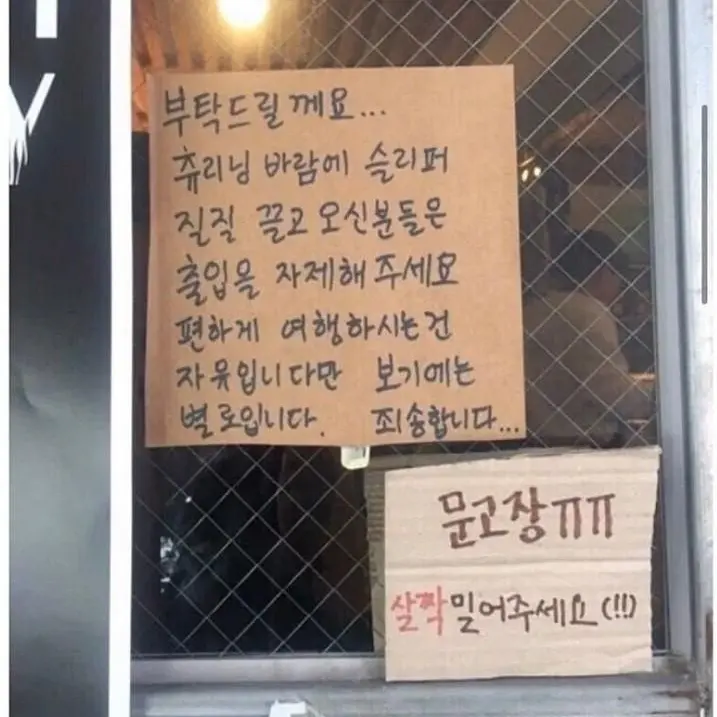 Y
부탁드릴께요...
츄리닝 바람에 슬리퍼
질질 끌고 오신분들은
출입을 자제해 주세요
편하게 여행하시는건
자유입니다만 보기에는
별로입니다. 죄송합니다...
문고장ㅠㅠ
살짝밀어주세요(!!)